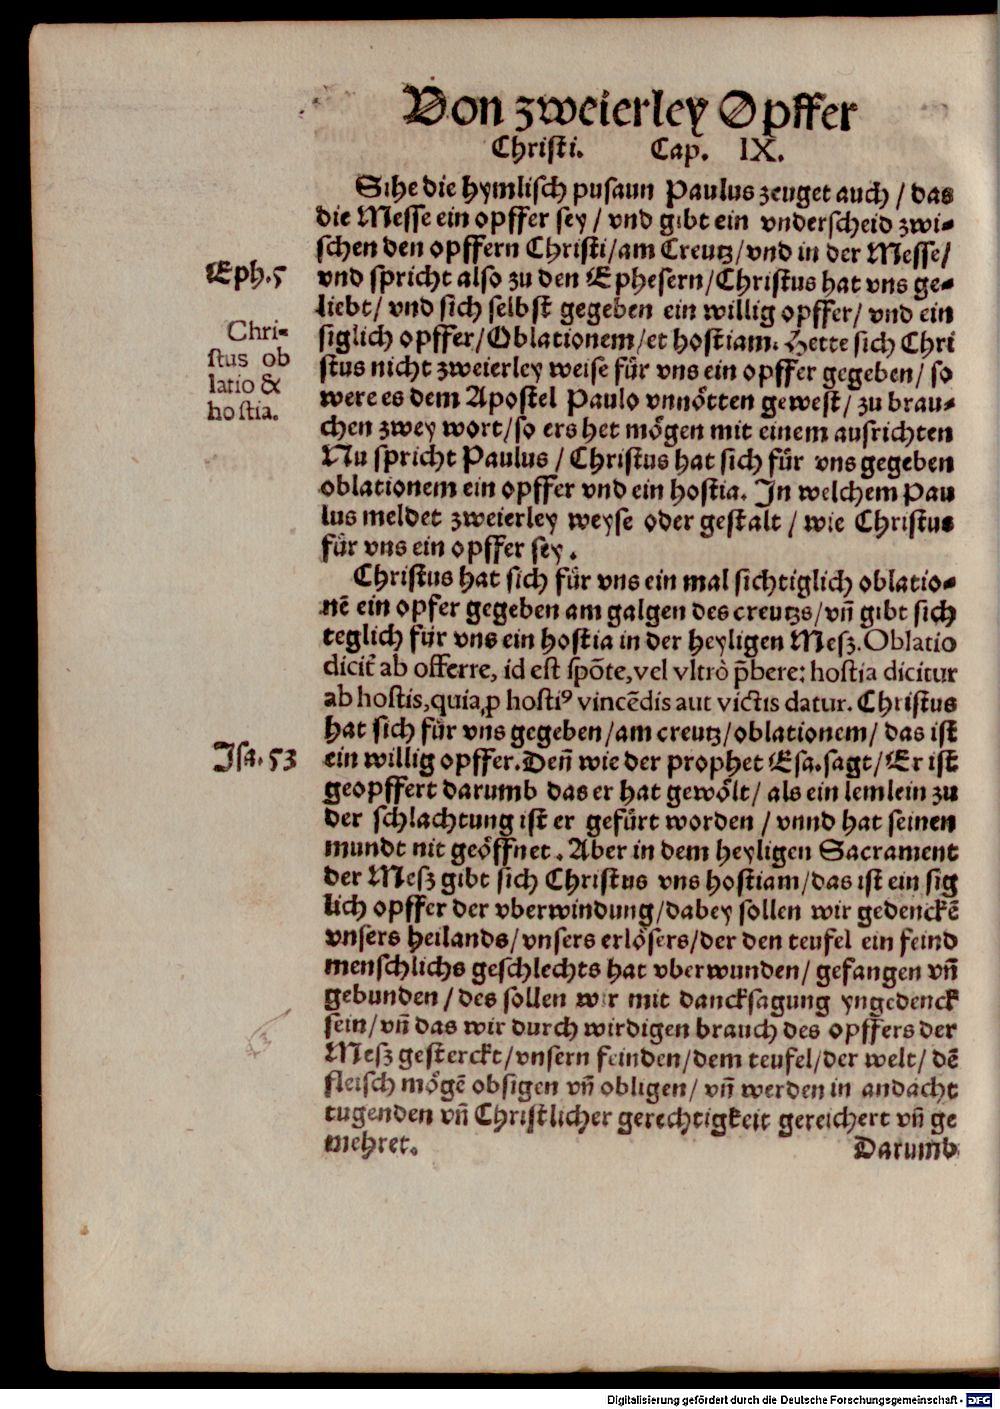 Von zweierley Opffer
Christi. Cap. IX.
Sihe die hymlisch pusaun Paulus zeuget auch / das
die Messe ein opffer sey / vnd gibt ein vnderscheid zwi-
schen den opffern Christi / am Creutz / vnd in der Messe /
Eph. 5
vnd spricht also zu den Ephesern / Christus hat vns ge-
liebt / vnd sich selbst gegeben ein willig opffer / vnd ein
Chri-
stus ob
latio &
hostia.
siglich opffer / Oblationem / et hostiam. Hette sich Chri
stus nicht zweierley weise für vns ein opffer gegeben / so
were es dem Apostel Paulo vnnötten gewest / zu brau-
chen zwey wort / so ers het mögen mit einem ausrichten
Nu spricht Paulus / Christus hat sich für vns gegeben
oblationem ein opffer vnd ein hostia. In welchem Pau
lus meldet zweierley weyse oder gestalt / wie Christus
für vns ein opffer sey.
Christus hat sich für vns ein mal sichtiglich oblatio-
nē ein opfer gegeben am galgen des creutzs / vñ gibt sich
teglich für vns ein hostia in der heyligen Mesz. Oblatio
dicit̃ ab offerre, id est spōte, vel vltrò p̄bere: hostia dicitur
ab hostis, quia ꝓ hostiꝰ vincēdis aut victis datur. Christus
hat sich für vns gegeben / am creutz / oblationem / das ist
Jsa. 53
ein willig opffer. Deñ wie der prophet Esa. sagt / Er ist
geopffert darumb das er hat gewölt / als ein lemlein zu
der schlachtung ist er gefürt worden / vnnd hat seinen
mundt nit geöffnet. Aber in dem heyligen Sacrament
der Mesz gibt sich Christus vns hostiam / das ist ein sig
lich opffer der vberwindung / dabey sollen wir gedenckē
vnsers heilands / vnsers erlösers / der den teufel ein feind
menschlichs geschlechts hat vberwunden / gefangen vñ
gebunden / des sollen wir mit dancksagung yngedenck
sein / vñ das wir durch wirdigen brauch des opffers der
Mesz gesterckt / vnsern feinden / dem teufel / der welt / dē
fleisch mögē obsigen vñ obligen / vñ werden in andacht
tugenden vñ Christlicher gerechtigkeit gereichert vñ ge
mehret.
Darumb
Digitalisierung gefördert durch die Deutsche Forschungsgemeinschaft - DFG